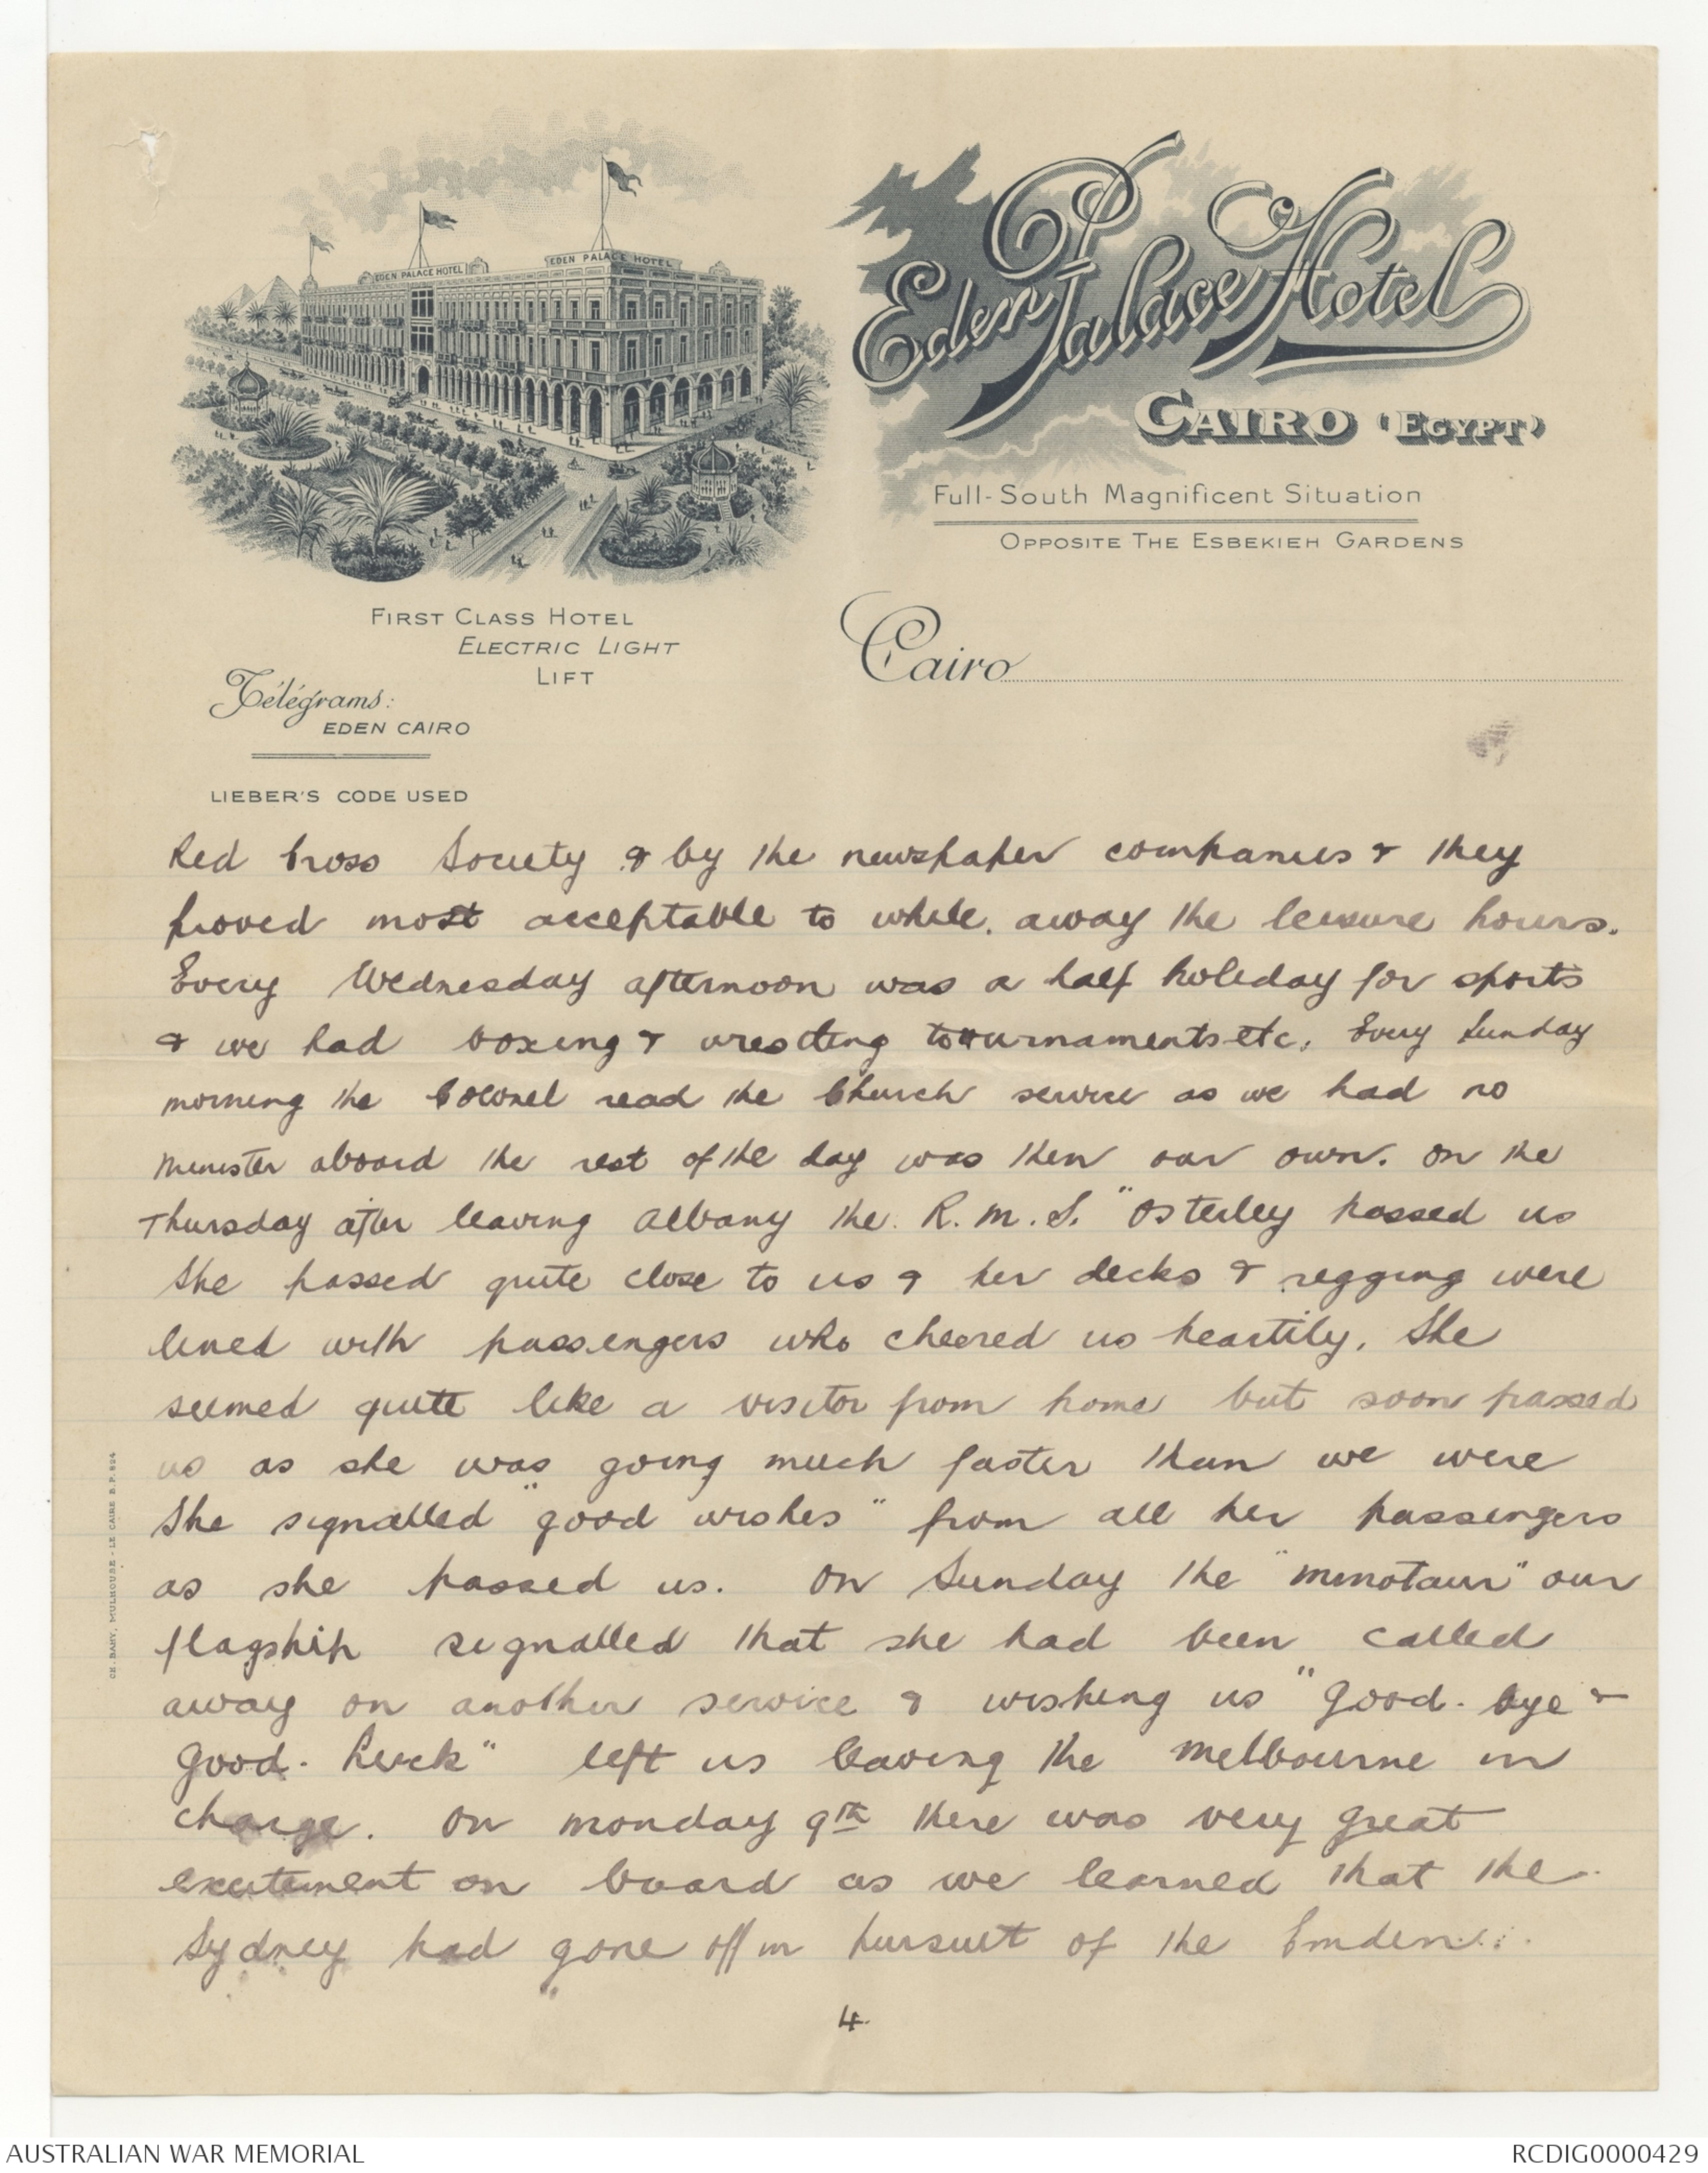 EDEN PALACE HOTEL
EDEN PALACE HOTEL
Eden Palace Hotel
CAIRO (EGYPT)
Full-South Magnificent Situation
OPPOSITE THE ESBEKIEH GARDENS
FIRST CLASS HOTEL
ELECTRIC LIGHT
LIFT
Télégrams:
EDEN CAIRO
LIEBER'S CODE USED
Cairo
Red Cross Society & by the newspaper companies & they
proved most acceptable to while away the leisure hours.
Every Wednesday afternoon was a half holiday for sports
& we had boxing & wrestling tournaments etc. Every Sunday
morning the Colonel read the Church service as we had no
minister aboard the rest of the day was then our own. On the
Thursday after leaving Albany the R.M.S. "Osterley passed us
She passed quite close to us & her decks & rigging were
lined with passengers who cheered us heartily. She
seemed quite like a visitor from home but soon passed
us as she was going much faster than we were
She signalled "good wishes" from all her passengers
as she passed us. On Sunday the "Minotaur" our
flagship signalled that she had been called
away on another service & wishing us "Good-bye &
Good-Luck" left us leaving the Melbourne in
charge. On Monday 9th there was very great
excitement on board as we learned that the
Sydney had gone off in pursuit of the Emden...
4.
CH. BAHY, MULHOUSE - LE CAIRE B.P. 824
AUSTRALIAN WAR MEMORIAL
RCDIG0000429